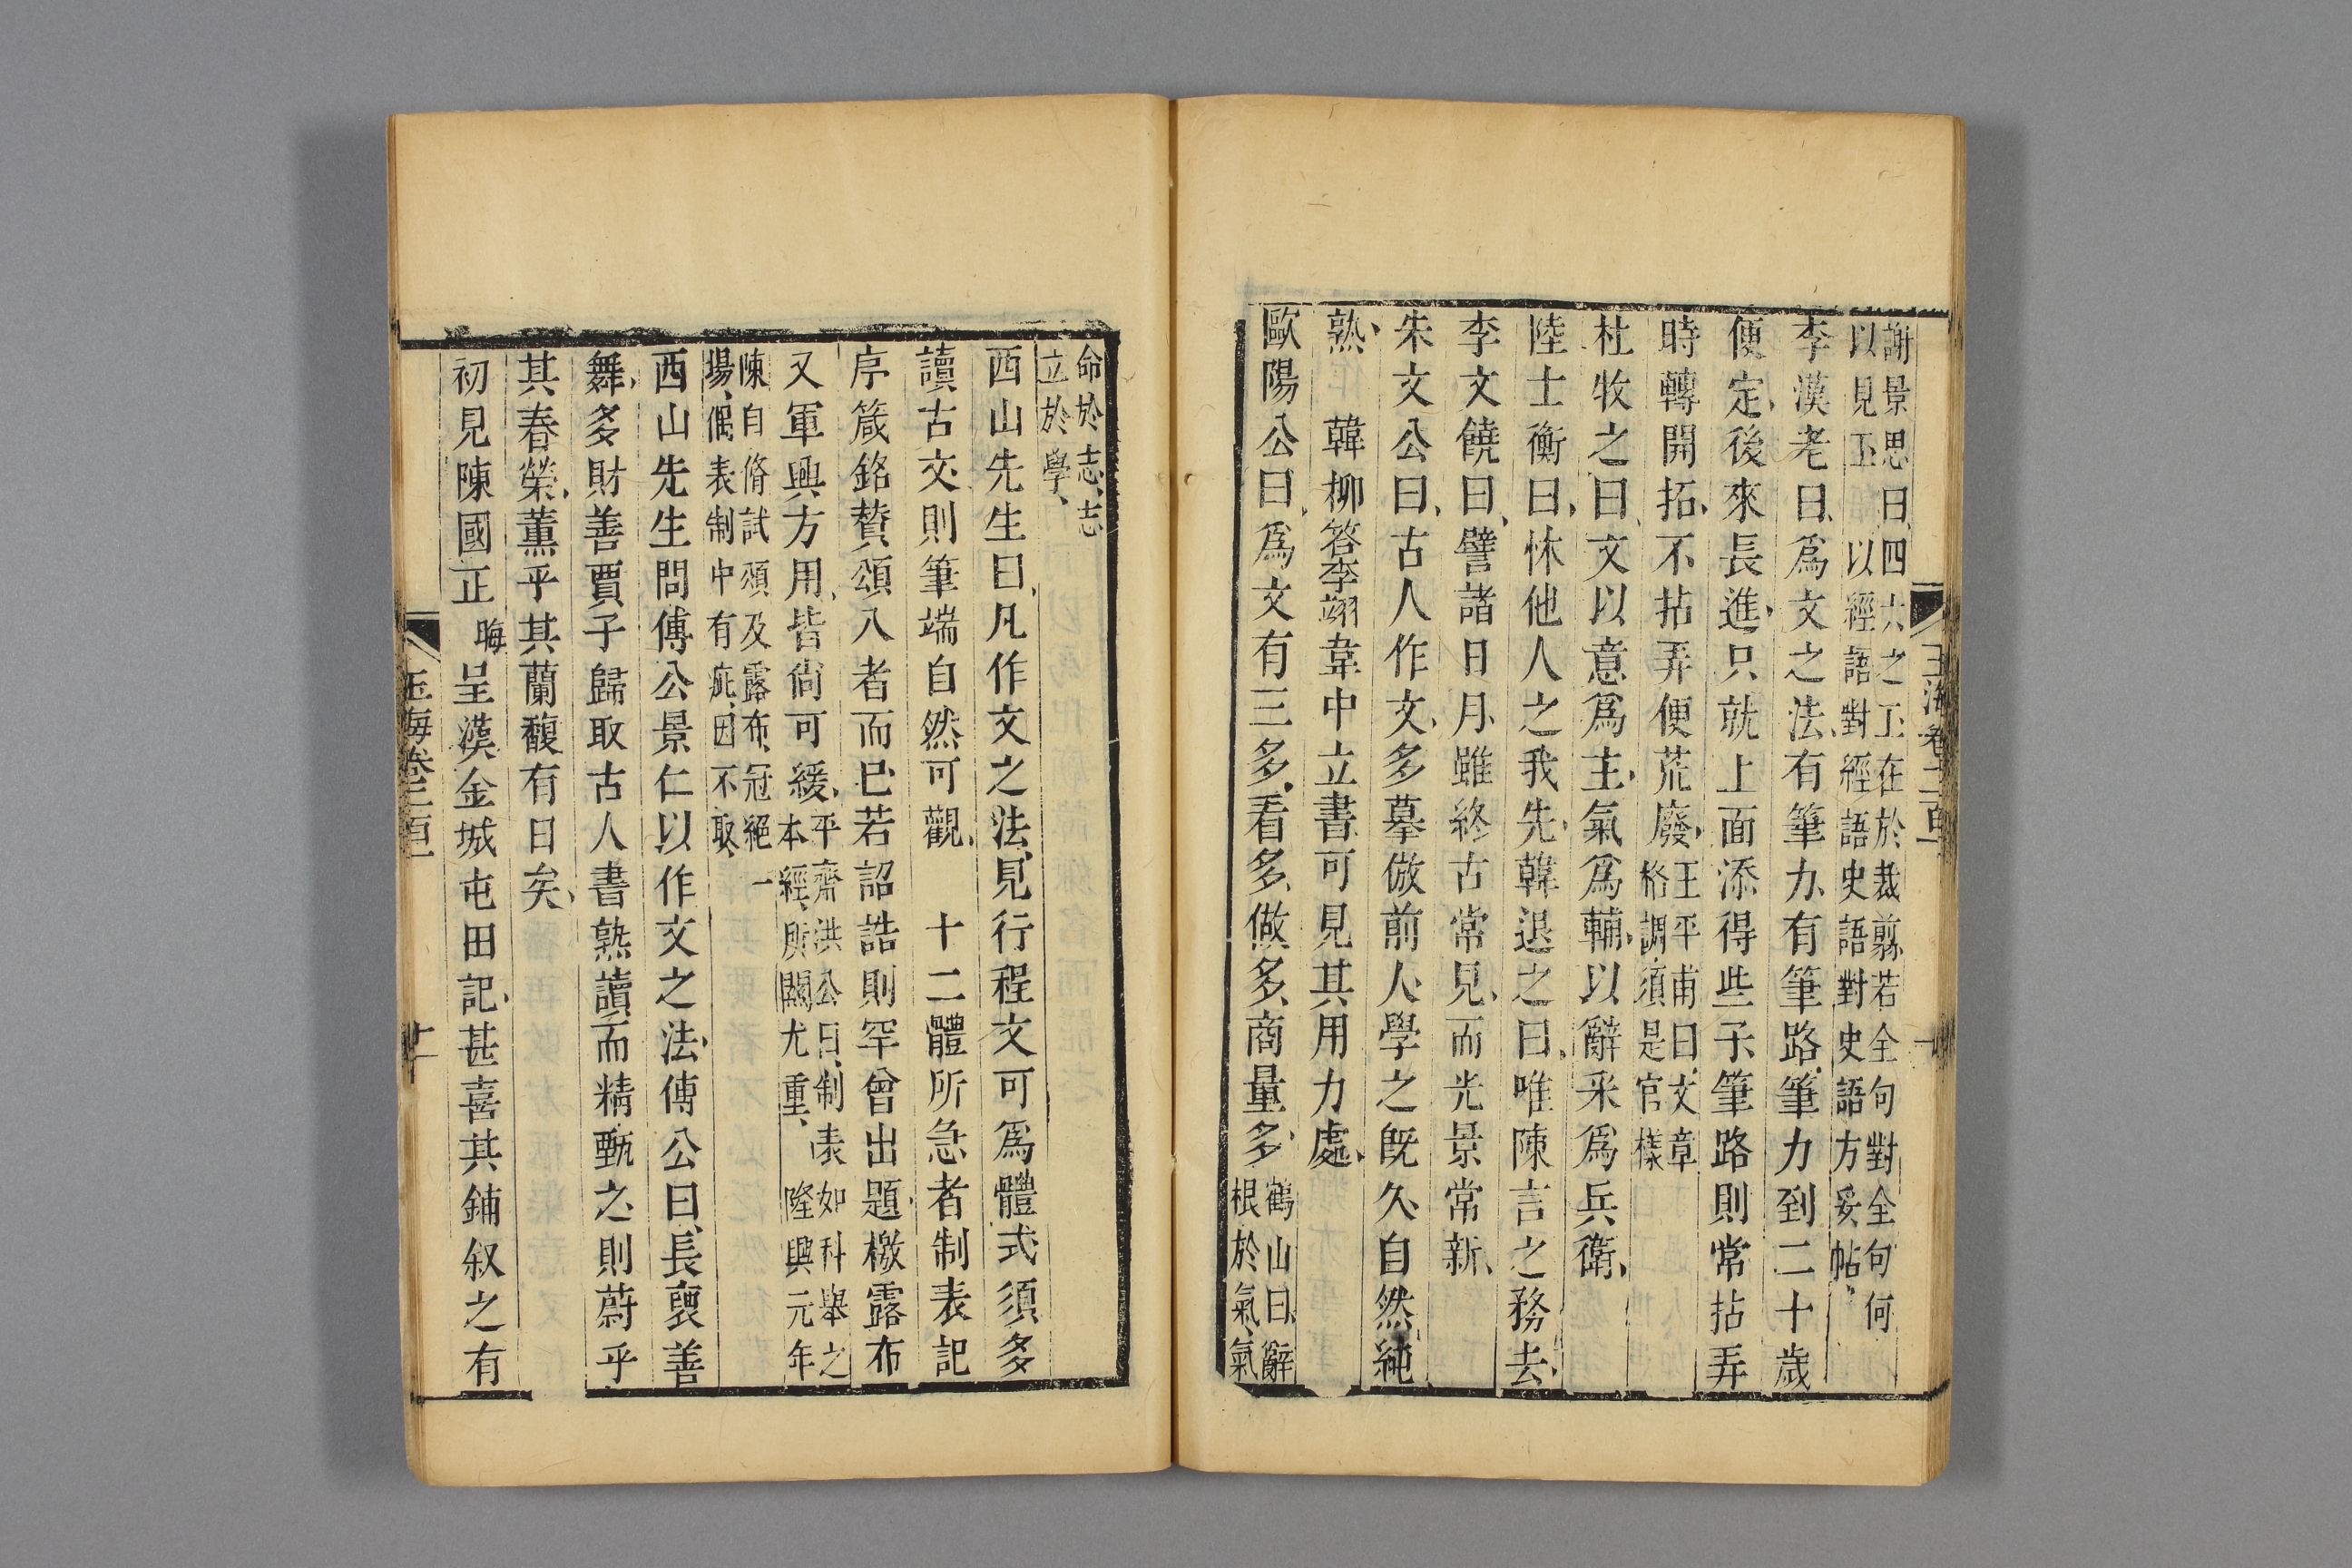 玉海卷二百一
謝景思曰四六之工在於裁剪若全句對全句何
以見工以經語對經語史語對史語方妥帖
李漢老曰爲文之法有筆力有筆路筆力到二十歲
便定後來長進只就上面添得些子筆路則常拈弄
時轉開拓不拈弄便荒廢王平甫曰文章
格調須是官樣
杜牧之曰文以意爲主氣爲輔以辭采爲兵衛
陸士衡曰怵他人之我先韓退之曰唯陳言之務去
李文饒曰譬諸日月雖終古常見而光景常新
朱文公曰古人作文多摹倣前人學之旣久自然純
熟韓柳答李翊韋中立書可見其用力處
歐陽公曰爲文有三多看多做多商量多鶴山曰辭
根於氣氣
命於志志
立於學
西山先生曰凡作文之法見行程文可爲體式須多
讀古文則筆端自然可觀 十二體所急者制表記
序箴銘贊頌八者而已若詔誥則罕曾出題檄露布
又軍興方用皆尙可緩平齋洪公曰制表如科舉之
本經所關尤重 隆興元年
陳自脩試頌及露布冠絕一
場偶表制中有疵因不取
西山先生問傅公景仁以作文之法傅公曰長袖善
舞多財善賈子歸取古人書熟讀而精甄之則蔚乎
其春榮薰乎其蘭馥有日矣
初見陳國正晦呈漢金城屯田記甚喜其鋪叙之有
玉海卷二百一
十一